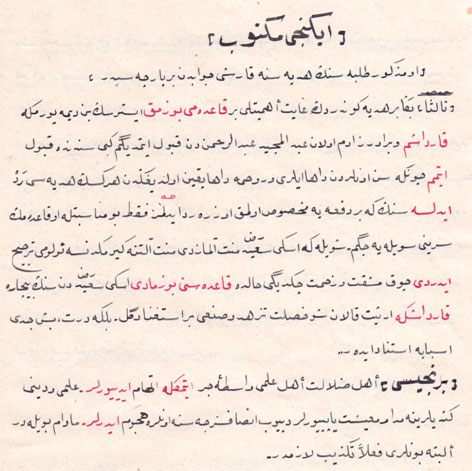 ﴿ ایکنجی مکتوب ﴾
﴿ او مذکور طلبه سنڭ هدیه سنه قارشی جوابدن بر پارچه سیدر ﴾
ثالثاً: بڭا بر هدیه کوندردڭ غایت أهمیتلی بر قاعده می بوزمق ایسترسڭ بن دیمه یورمکه
قارداشم و برادرزادم اولان عبد المجید عبد الرحمن دن قبول ایتمدیگم کبی سندنده قبول
ایتمم چونکه سن اونلردن داها ایلری و روحمه داها یقین اولدیغڭدن هرکسڭ هدیه سی رد
ایدلسه سنڭکی بر دفعه یه مخصوص اولمق اوزره رد ایدلمز فقط بو مناسبتله او قاعده مڭ
سرینی سویله یه جگم. شویله که اسکی سعید منت آلمازدی منت آلتنه گیرمکدنسه ئولومی ترجیح
ایدردی چوق مشقت و زحمت چکدیگی حالده قاعده سنی بوزمادی اسکی سعید دن سنڭ بیچاره
قارداشڭه ارثیت قالان شو خصلت تزهد و صنعی بر استغنا دگل. بلکه درت، بش جدی
اسبابه استناد ایدر..
برنجیسی: أهل ضلالت أهل علمی واسطۀ جر ایتمکله اتهام ایدییورلر. علمی و دینی
کندیلرینه مدار معیشت یاپییورلر دییوب انصافسزجه سنه اونلره هجوم ایدرلر. مادام بویله در
البته بونلری فعلاً تکذیب لازمدر.